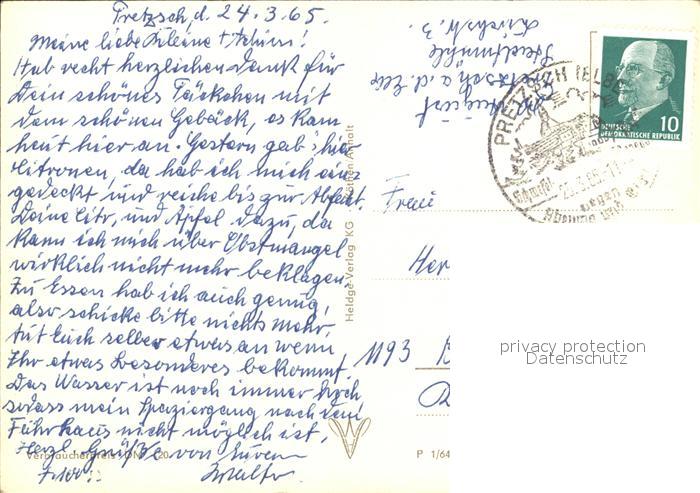 Pretzsch, d. 24.3.65.
Meine liebe Helene + Achim!
Hab recht herzlichen Dank für
Dein schönes Päckchen mit
dem schönen Gebäck, es kam
heut hier an. Gestern gab's hier
Citronen, da hab ich mich ein-
gedeckt und reiche bis zur Abfahrt.
Deine Citr, und Äpfel dazu, da
kann ich mich über Obstmangel
wirklich nicht mehr beklagen.
Zu Essen hab ich auch genug,
also schicke bitte nichts mehr,
tut Euch selber etwas an wenn
Ihr etwas besonderes bekommt.
Das Wasser ist noch immer hoch
sodass mein Spaziergang nach dem
Fährhaus nicht möglich ist,
Herzl. Grüße von Eurem
Walter
Verbraucherpreis DM 0,20
Heldge-Verlag KG Köthen Anhalt
P 1/64
Pretzsch a. d. Elbe
PRETZSCH (ELBE)
DEUTSCHE
DEMOKRATISCHE REPUBLIK
10
Frau
Her
1193 B
privacy protection
Datenschutz